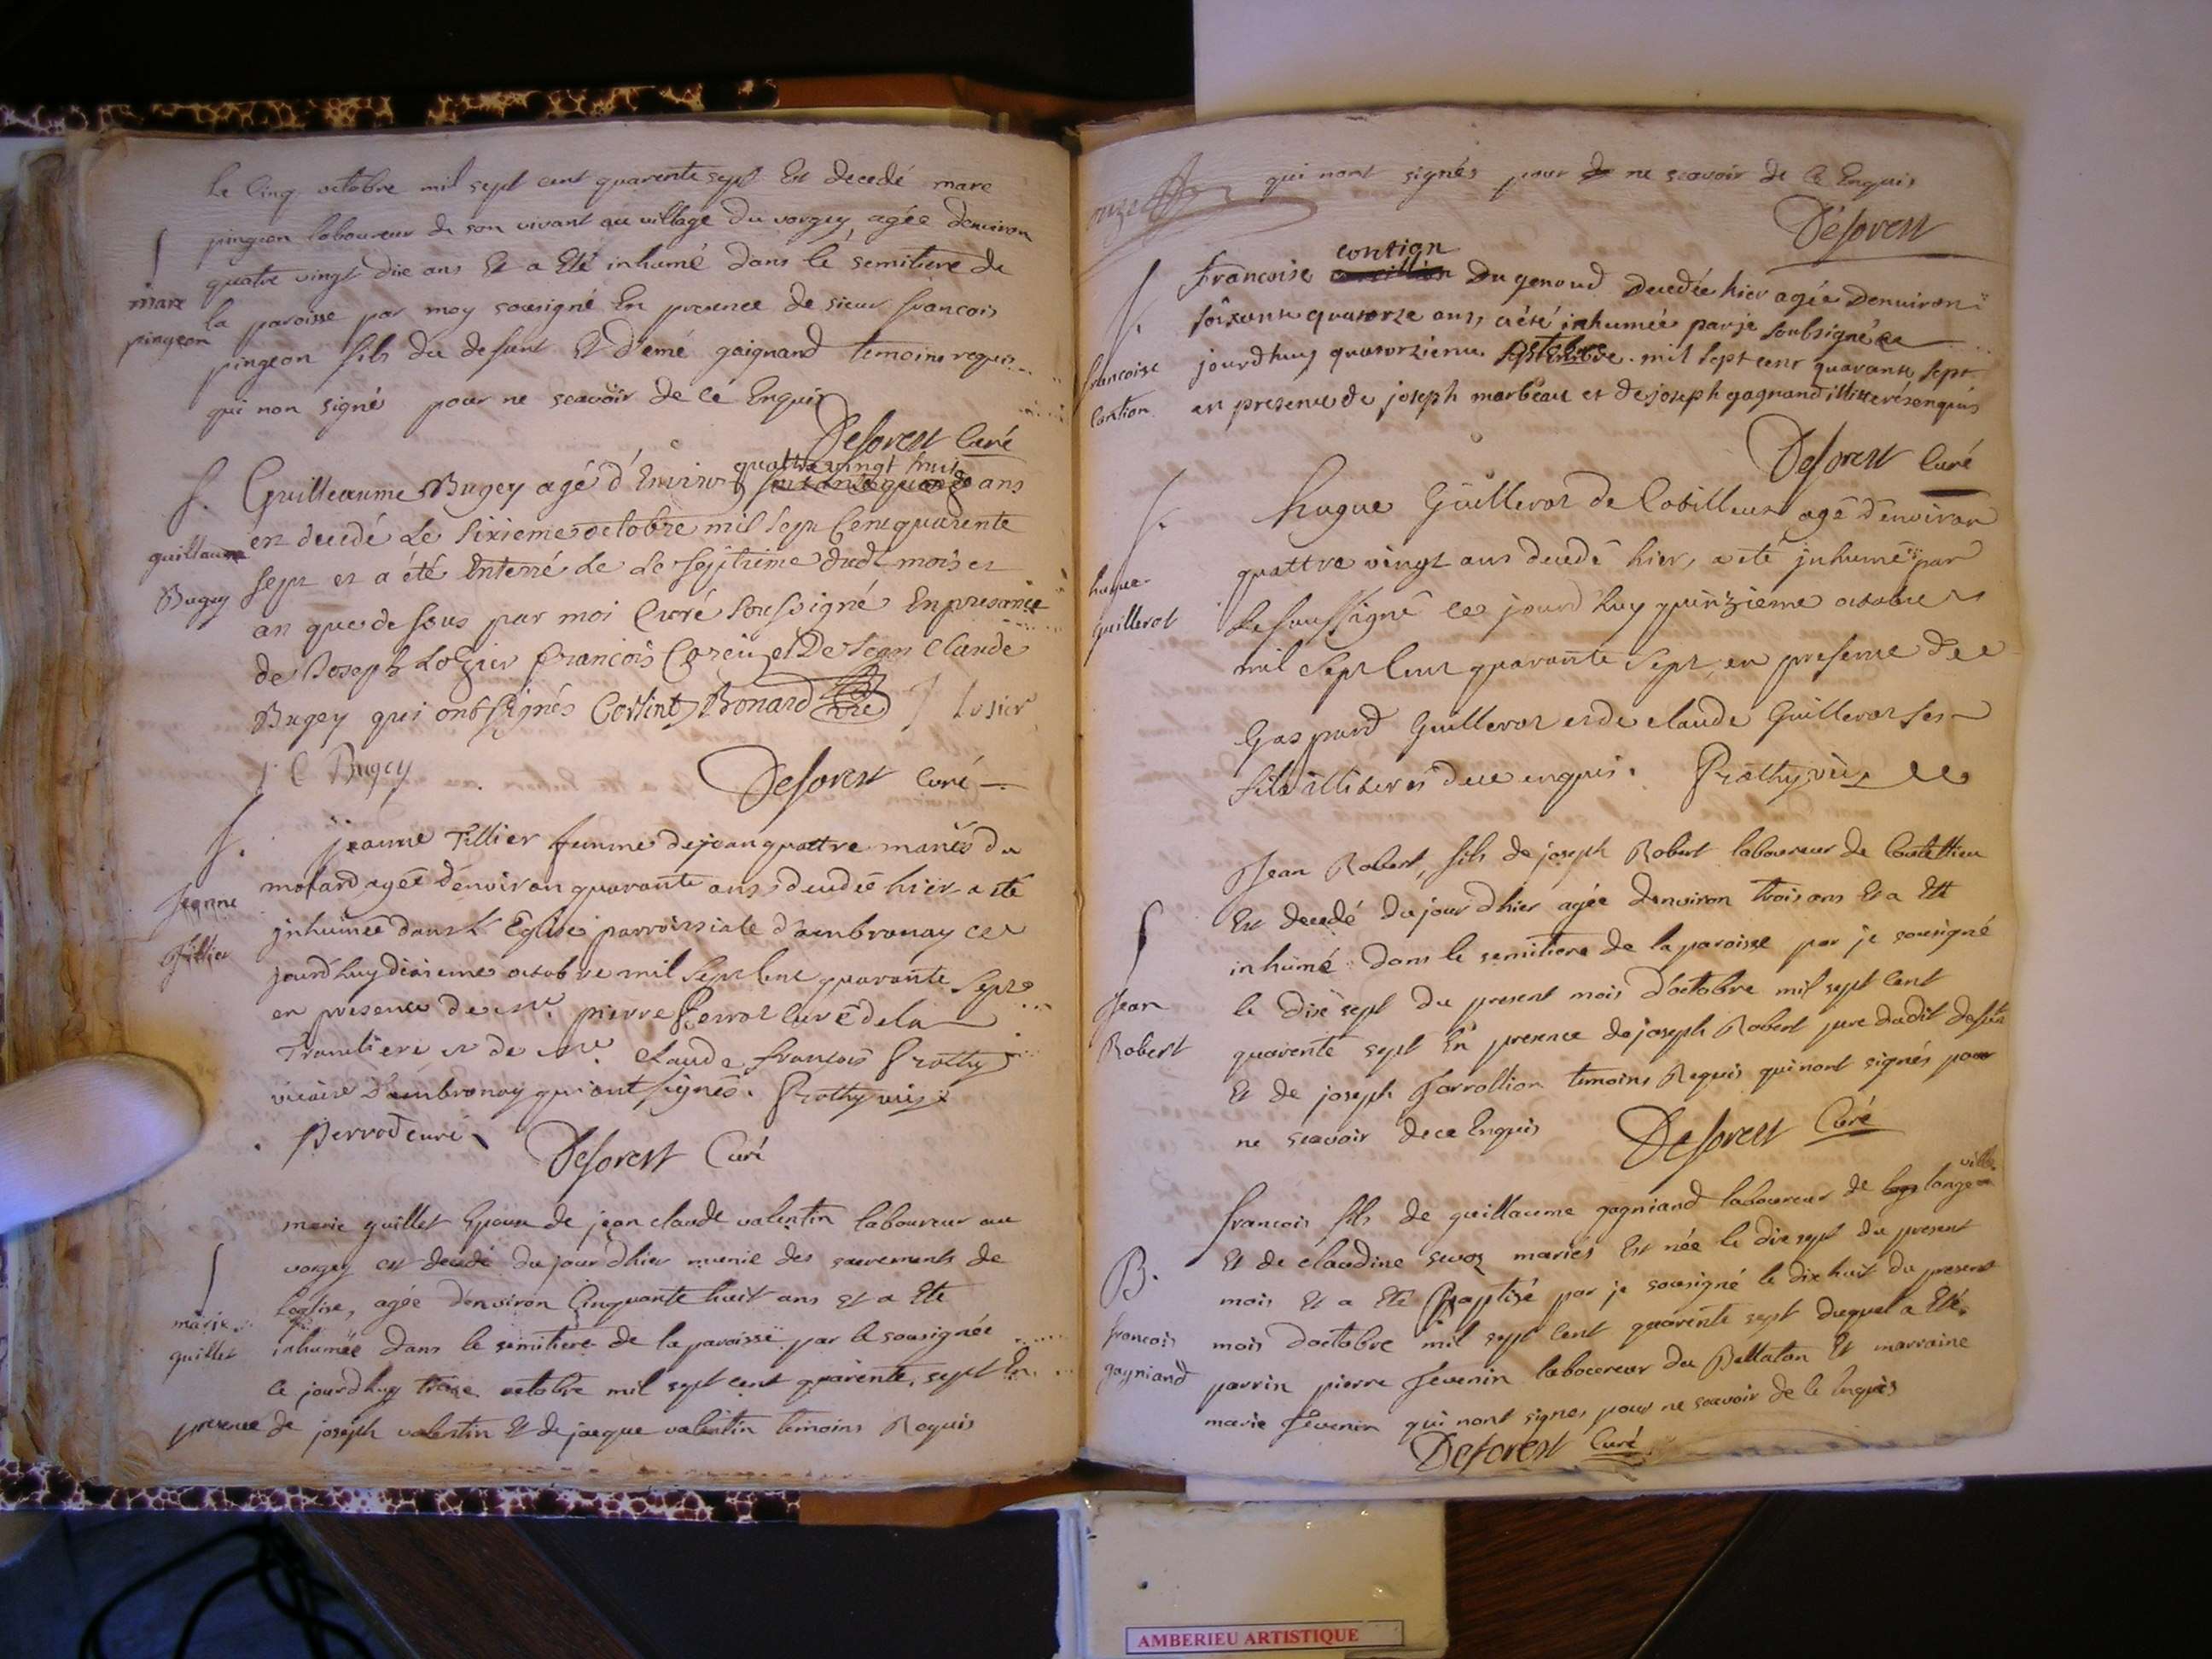 Le Cinq octobre mil sept cent quarente sept Est decedé marc
pingeon laboureur de son vivant au village du vorgey, agée denviron
quatre vingt dix ans Et a Eté inhumé dans le semitiere de
la paroisse par moy sousigné En presence de sieur francois
pingeon fils du defunt Et d'emé gaignand temoins requis
qui non signé pour ne scavoir de ce Enquis
Deforest Curé
marc
pingeon
Guilleaume Bugey agé d'Environ quattre vingt huit ans
est decedé Le Sixieme octobre mil Sept Cent quarente
Sept et a été Enterré Le Le Septieme dudt mois et
an que desous par moi Curé Soussigné En presance
de Joseph Lozier francois et De Jean Claude
Bugey qui ont signés Bonard J Losier
J C Bugey Deforest Curé
guillaume
Bugey
S.
jeanne Tillier femme de jean quattre mariés du
molard agée d'environ quarante ans decedée hier a eté
inhumée dans L'Eglise parroissiale d'ambronay ce
jourd'huy dixieme octobre mil Sept Cent quarante Sept
en presence de mre. pierre Perrod curé de la
Tranclieri et de mre. Claude francois Prothy
vicaire d'ambronay qui ont signés. Prothy vic:
Perrod curé Deforest Curé
S.
Jeanne
Tillier
marie guillet Epouse de jean claude valentin laboureur au
vorgey est decedé du jour dhier munie des sacrements de
L'eglise, agée d'environ Cinquante huit ans Et a Eté
inhumée dans le semitiere de la paroisse par le sousignée
ce jourd'huy treize octobre mil sept cent quarente sept En
presence de joseph valentin Et de jacque valentin temoins Requis
marie
guillet
onze
qui nont signés pour de ne scavoir de ce Enquis
Deforest
contion
francoise Du genoud Decedée hier agée Denviron
soixante quatorze ans, a été inhumée par je soubsigné ce
jourdhuy quatorzieme octobre mil sept cent quarante sept
en presence de joseph marbeau et de joseph gagnand illiterés enquis
Deforest Curé
S.
francoise
Contion
hugue Guillerot de Cotillieux agé d'environ
quattre vingt ans decedé hier, a eté inhumé par
Le Soussigné ce jourd'huy quinzieme octobre
mil Sept Cent quarante Sept en presence de
Gaspard Guillerot et de claude Guillerot ses
fils illiterés de ce enquis. Prothy vic:
hugue
guillerot
Jean Robert, fils de joseph Robert laboureur de
Est decedé du jour dhier agée denviron trois ans Et a Eté
inhumé dans le semitiere de la paroisse par je sousigné
le dix sept du present mois d'octobre mil sept cent
quarente sept En presence de joseph Robert pere dudit defunt
Et de joseph temoins Requis qui nont signés pour
ne scavoir de ce Enquis Deforest Curé
Jean
Robert
francois fils de guillaume gagniand laboureur de longeville
Et de claudine sevoz mariés Est née le dix sept du present
mois Et a Eté Baptisé par je sousigné le dix huit du present
mois doctobre mil sept cent quarente sept duquel a Eté
parrin pierre Tevenin laboureur du Battaton Et marraine
marie Tevenin qui nont signes pour ne scavoir de ce Enquis
Deforest Curé
B.
francois
gagniand
AMBERIEU ARTISTIQUE